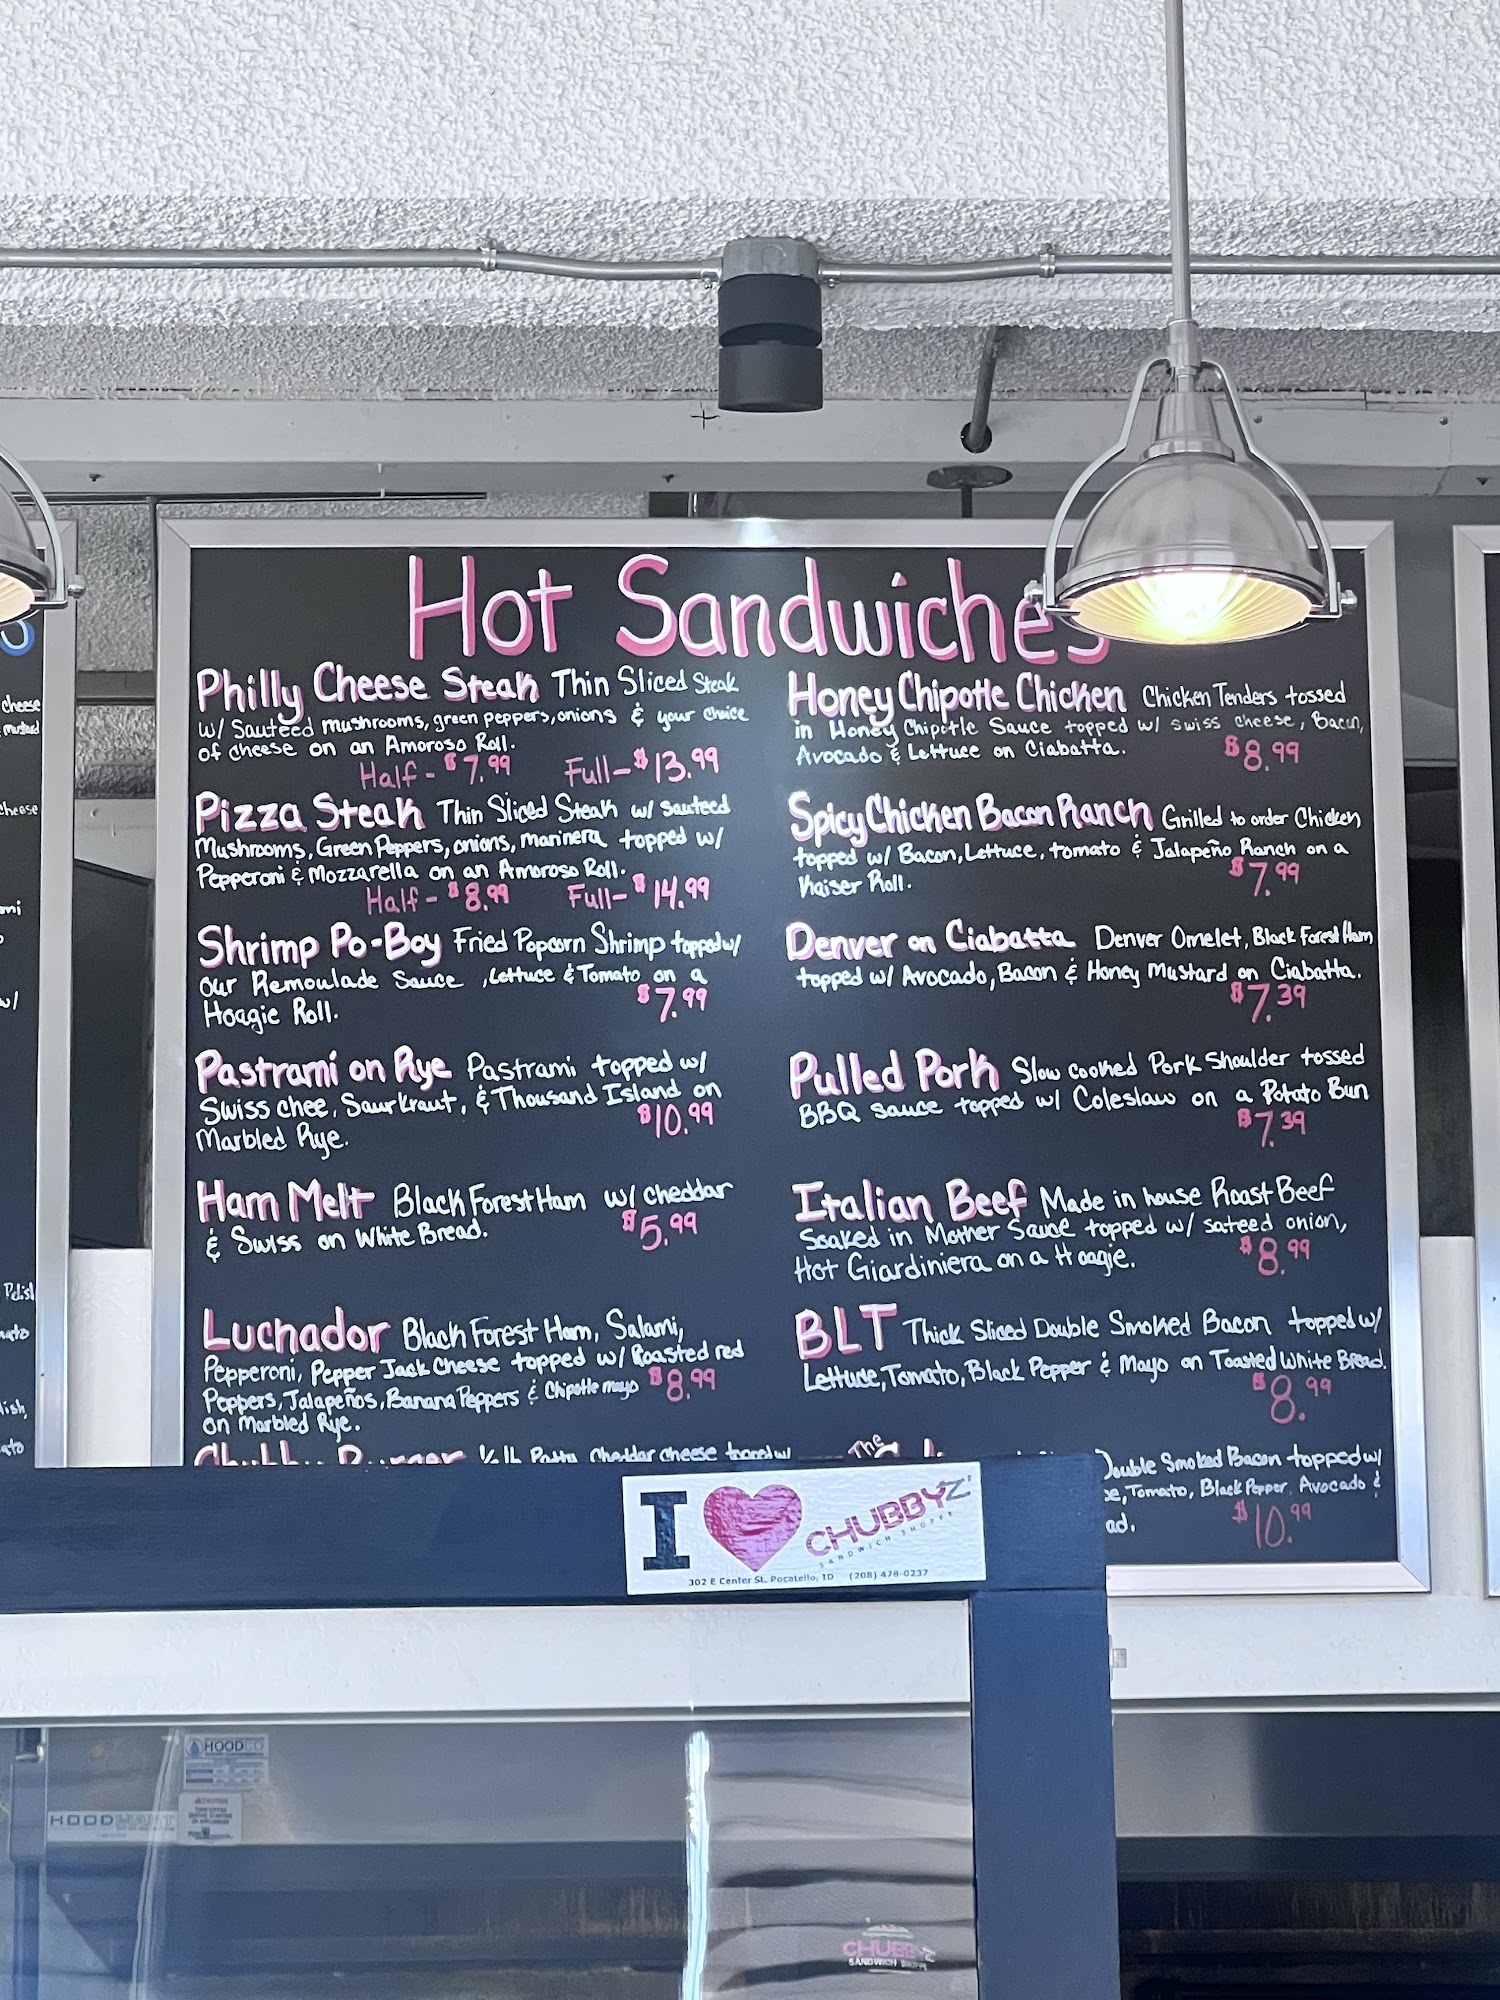 Hot Sandwiches
Philly Cheese Steak Thin Sliced Steak
w/ Sauteed mushrooms, green peppers, onions & your choice
of cheese on an Amoroso Roll.
Half - $7.99 Full - $13.99
Pizza Steak Thin Sliced Steak w/ sauteed
Mushrooms, Green Peppers, onions, marinera topped w/
Pepperoni & Mozzarella on an Amoroso Roll.
Half - $8.99 Full - $14.99
Shrimp Po-Boy Fried Popcorn Shrimp topped w/
our Remoulade Sauce , Lettuce & Tomato on a
Hoagie Roll. $7.99
Pastrami on Rye Pastrami topped w/
Swiss chee, Saurkraut, & Thousand Island on
Marbled Rye. $10.99
Ham Melt Black Forest Ham w/ cheddar
& Swiss on White Bread. $5.99
Luchador Black Forest Ham, Salami,
Pepperoni, Pepper Jack Cheese topped w/ Roasted red
Peppers, Jalapeños, Banana Peppers & Chipotle mayo $8.99
on Marbled Rye.
Chubby Burger 1/2 lb Patty Cheddar cheese topped w/
Honey Chipotle Chicken Chicken Tenders tossed
in Honey Chipotle Sauce topped w/ swiss cheese, Bacon,
Avocado & Lettuce on Ciabatta. $8.99
Spicy Chicken Bacon Ranch Grilled to order Chicken
topped w/ Bacon, Lettuce, tomato & Jalapeño Ranch on a
Kaiser Roll. $7.99
Denver on Ciabatta Denver Omelet, Black Forest Ham
topped w/ Avocado, Bacon & Honey Mustard on Ciabatta.
$7.39
Pulled Pork Slow cooked Pork Shoulder tossed
BBQ sauce topped w/ Coleslaw on a Potato Bun
$7.39
Italian Beef Made in house Roast Beef
Soaked in Mother Sauce topped w/ sateed onion,
Hot Giardiniera on a Hoagie. $8.99
BLT Thick Sliced Double Smoked Bacon topped w/
Lettuce, Tomato, Black Pepper & Mayo on Toasted White Bread.
$8.99
The
Double Smoked Bacon topped w/
Tomato, Black Pepper, Avocado &
$10.99
I CHUBBY'Z
SANDWICH SHOPPE
302 E Center St. Pocatello, ID (208) 478-0237
cheese
mustard
cheese
w/
HOODCO
CAUTION
HOODMART
CHUBBY'Z
SANDWICH SHOPPE